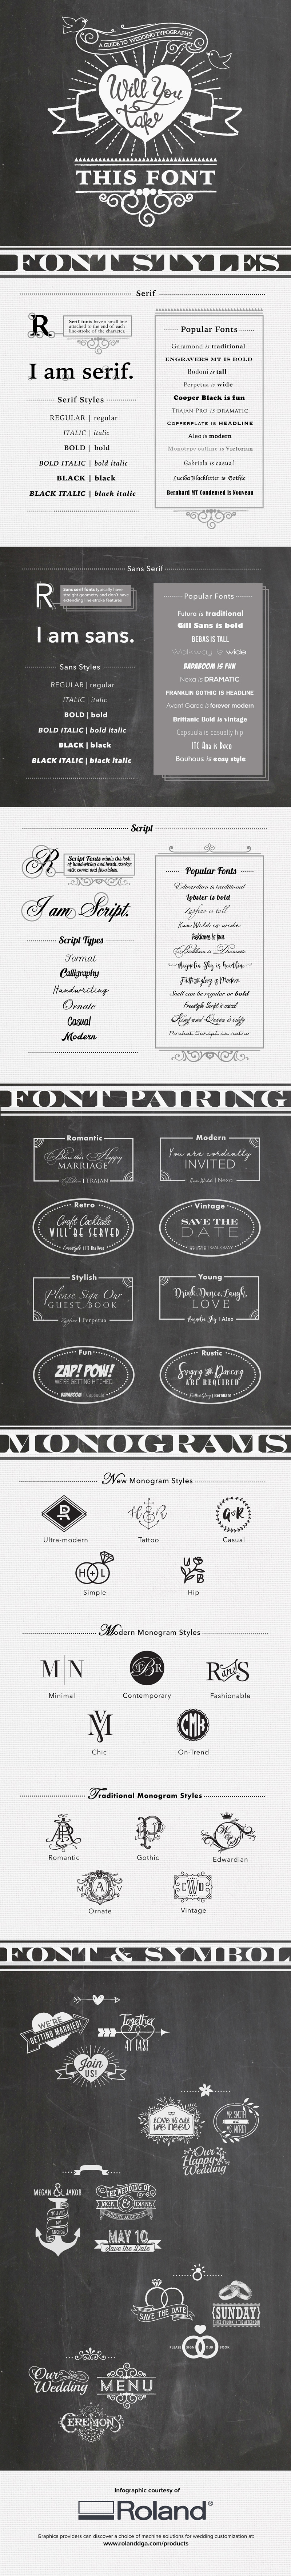 A GUIDE TO WEDDING TYPOGRAPHY
Will You
Take
THIS FONT
FONT STYLES
Serif
R
Serif fonts have a small line
attached to the end of each
line stroke of the character.
I am serif.
Serif Styles
REGULAR | regular
ITALIC | italic
BOLD | bold
BOLD ITALIC | bold italic
BLACK | black
BLACK ITALIC | black italic
Popular Fonts
Garamond is traditional
ENGRAVERS MT IS BOLD
Bodoni is tall
Perpetua is wide
Cooper Black is fun
TRAJAN PRO IS DRAMATIC
COPPERPLATE IS HEADLINE
Aleo is modern
Monotype outline is Victorian
Gabriola is casual
Lucida Blackletter is Gothic
Bernhard MT Condensed is Nouveau
Sans Serif
R
Sans serif fonts typically have
straight geometry and don't have
extending line-stroke features.
I am sans.
Sans Styles
REGULAR | regular
ITALIC | italic
BOLD | bold
BOLD ITALIC | bold italic
BLACK | black
BLACK ITALIC | black italic
Popular Fonts
Futura is traditional
Gill Sans is bold
BEBAS IS TALL
Walkway is wide
BADABOOM IS FUN
Nexa is DRAMATIC
FRANKLIN GOTHIC IS HEADLINE
Avant Garde is forever modern
Brittanic Bold is vintage
Capsuula is casually hip
ITC Ana is Deco
Bauhaus is easy style
Script
R
Script Fonts mimic the look
of handwriting and brush strokes
with curves and flourishes.
I am Script.
Script Types
Formal
Calligraphy
Handwriting
Ornate
Casual
Modern
Popular Fonts
Edwardian is traditional
Lobster is bold
Zapfino is tall
Run Wild is wide
is fun
is Dramatic
Magnolia Sky is headline
Faith & glory is Modern
Snell can be regular or bold
Freestyle Script is casual
King and Queen is
Rocket Script is retro
FONT PAIRING
Romantic
Bless this Happy
MARRIAGE
| TRAJAN
Modern
You are cordially
INVITED
Run Wild | Nexa
Retro
Craft Cocktails
WILL BE SERVED
Freestyle | ITC Ana Deco
Vintage
SAVE THE
DATE
| WALKWAY
Stylish
Please Sign Our
GUEST BOOK
Zapfino | Perpetua
Young
Drink, Dance, Laugh,
LOVE
Magnolia Sky | Aleo
Fun
ZAP! POW!
WE'RE GETTING HITCHED
BADABOOM | Capsuula
Rustic
Singing and Dancing
ARE REQUIRED
| Bernhard
MONOGRAMS
New Monogram Styles
Ultra-modern
H R
Tattoo
G&R
Casual
H+L
Simple
U S B
Hip
Modern Monogram Styles
M|N
Minimal
TBR
Contemporary
R and S
Fashionable
Chic
CMK
On-Trend
Traditional Monogram Styles
Romantic
P
Gothic
Edwardian
M A V
Ornate
CWD
Vintage
FONT & SYMBOL
WE'RE
GETTING MARRIED!
Together
AT LAST
Join
US!
LOVE IS ALL
WE NEED
MR. SMITH
MR. MARTER
Our
Happy
Wedding
MEGAN & JAKOB
YOU ARE
MY
ANCHOR
THE WEDDING OF
JACK & DIANE
MAY 10
Save the Date
SAVE THE DATE
{SUNDAY}
PLEASE SIGN OUR BOOK
Our
Wedding
MENU
CEREMONY
Infographic courtesy of
Roland®
Graphics providers can discover a choice of machine solutions for wedding customization at:
www.rolanddga.com/products